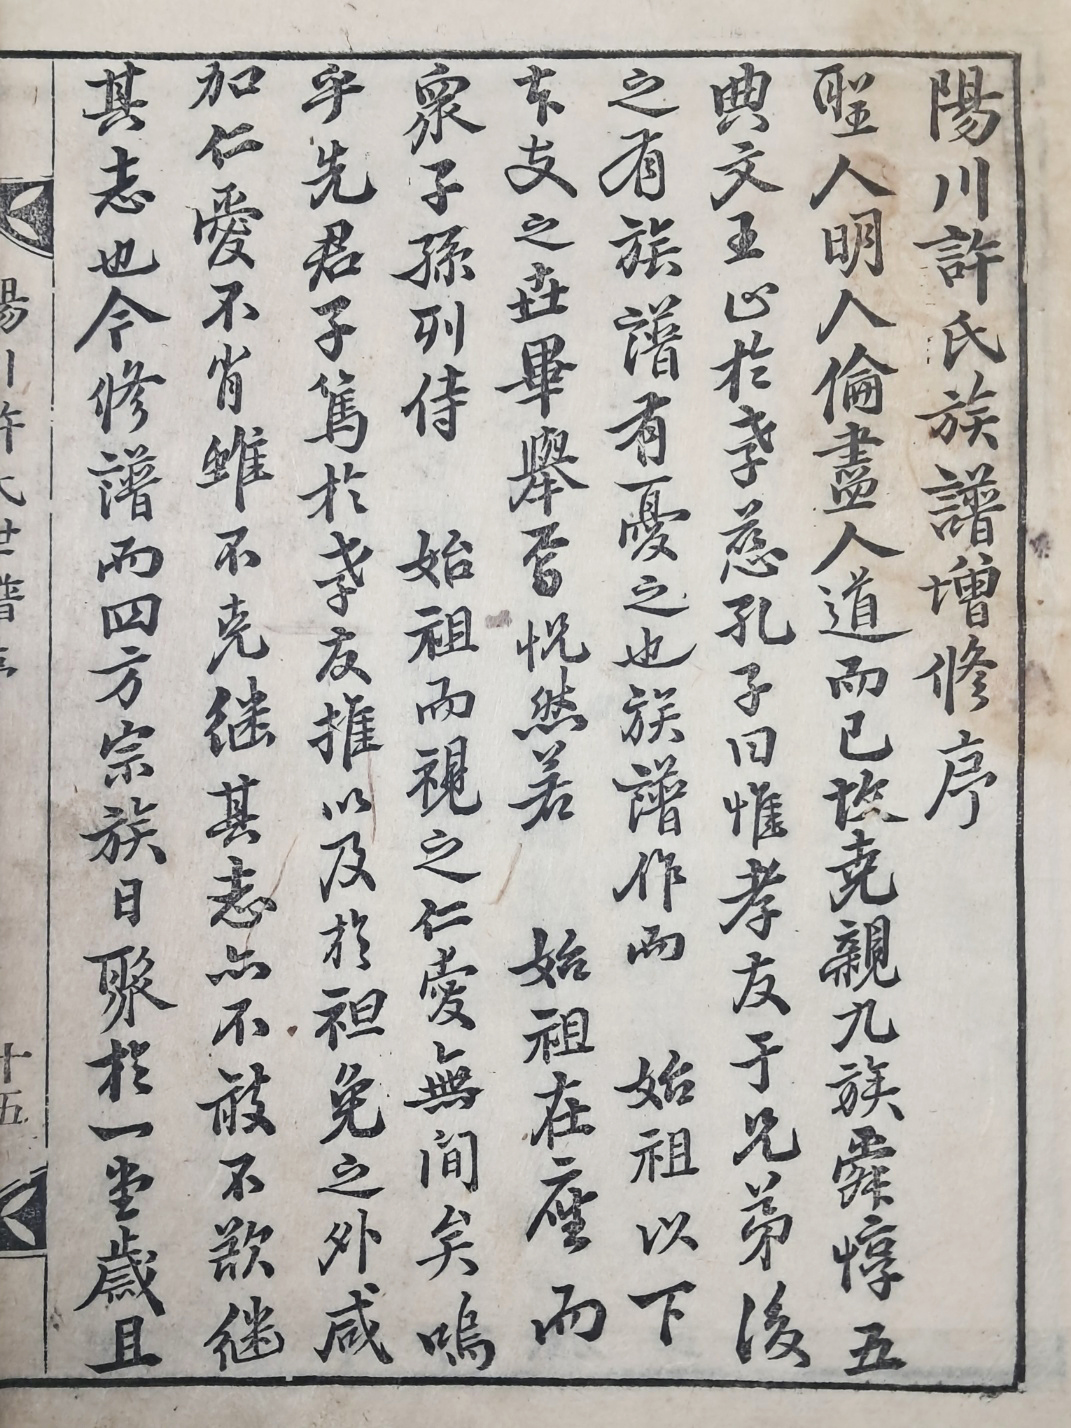 陽川許氏族譜增修序
聖人明人倫盡人道而已故堯親九族舜惇五
典文王止於孝慈孔子曰惟孝友于兄弟後
之有族譜有憂之也族譜作而 始祖以下
本支之世畢舉焉怳然若 始祖在座而
衆子孫列侍 始祖而視之仁愛無間矣嗚
乎先君子篤於孝友推以及於袒免之外咸
加仁愛不肖雖不克继其志亦不敢不欲继
其志也今修譜而四方宗族日聚於一堂歲且
陽川許氏世譜序
十五